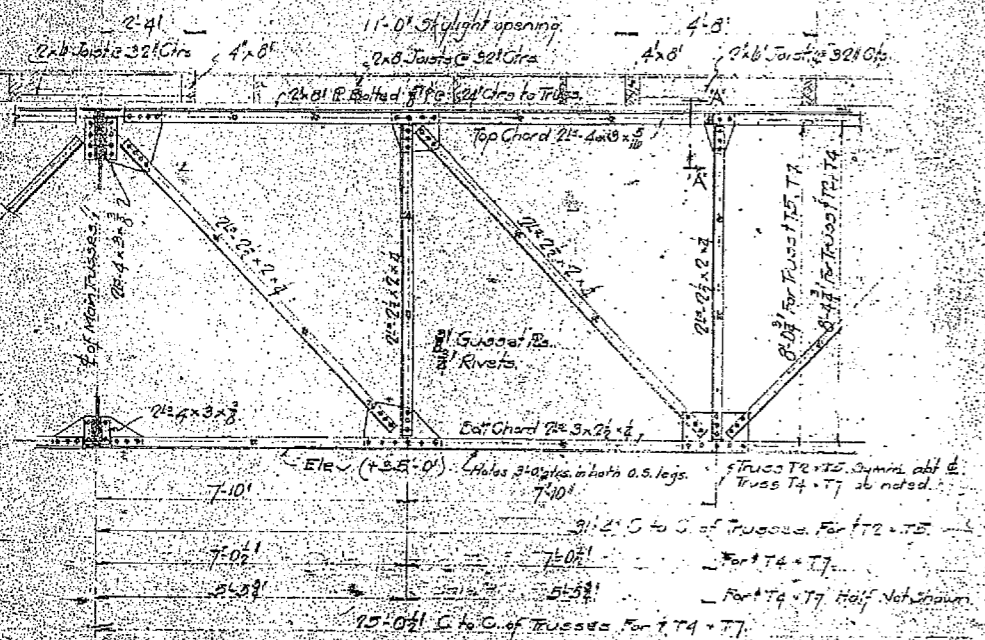 2'-4"
11'-0" Skylight opening
4'-8"
2x6 Joists @ 32" Ctrs
4"x8"
2x8 Joists @ 32" Ctrs
4"x8"
2"x6" Joist @ 32" Ctrs
Bolted
24" Ctrs to Truss.
A
Top Chord 2Ls-4x3x5/16
A
℄ of Main Trusses
2Ls-4x3x3/8
2Ls-2½x2x¼
2Ls-2½x2x¼
2Ls-2½x2x¼
2Ls-2½x2x¼
For Truss T5, T7
For Truss T2, T4
3/8" Gusset ℙs.
Rivets.
2Ls 4x3x3/8
Bot Chord 2Ls 3x2½x¼
Elev. (+35'-0")
Holes 3'-0" ctrs. in both O.S. legs.
Truss T2 + T5 Symm. abt ℄
Truss T4 + T7 as noted.
7'-10"
7'-10"
31'-4" C to C. of Trusses. For T2 + T5
7'-0½"
7'-0½"
For T4 + T7
5'-5¾"
5'-5¾"
For T4 + T7 Half Not Shown
25'-0½" C. to C. of Trusses For T4 + T7.